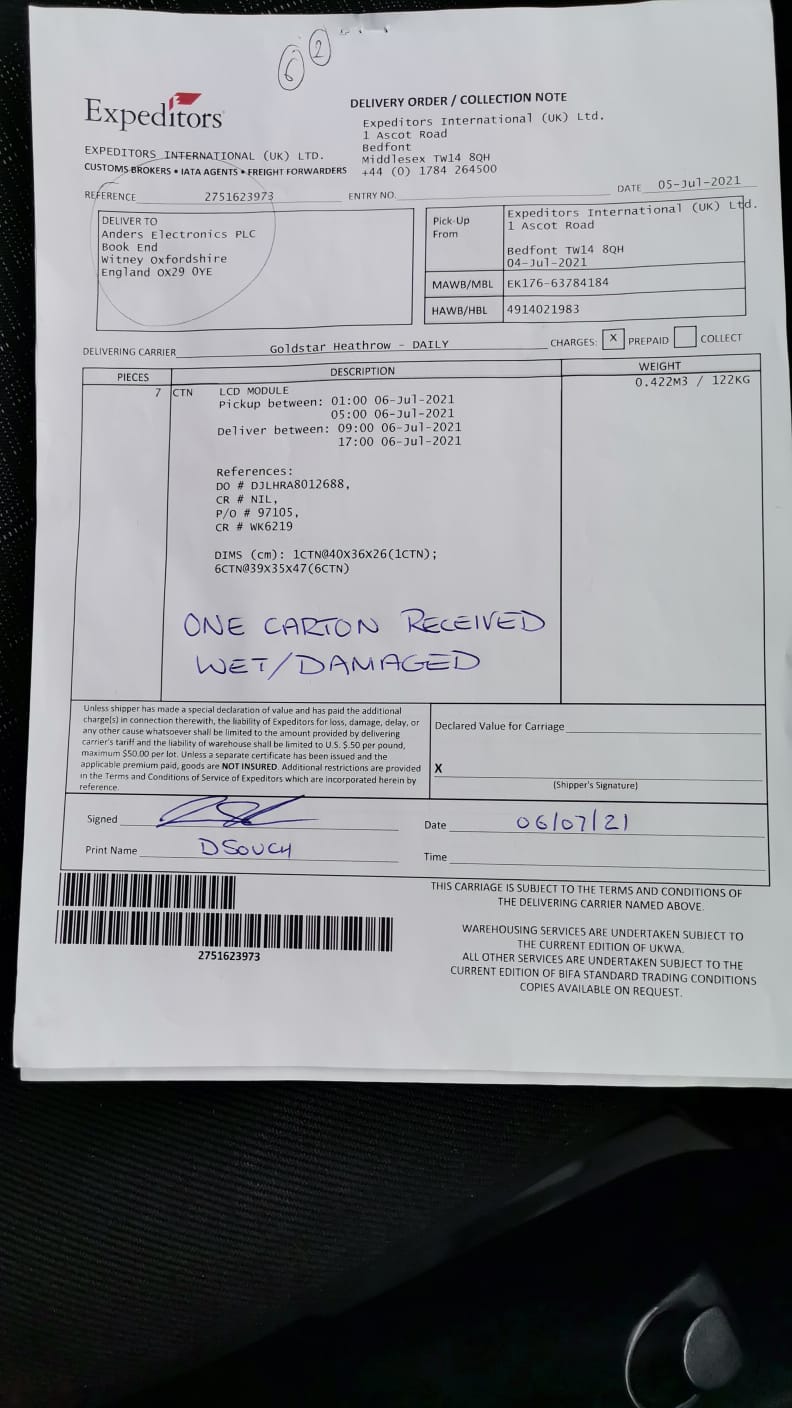 6 2
Expeditors
EXPEDITORS INTERNATIONAL (UK) LTD.
CUSTOMS BROKERS • IATA AGENTS • FREIGHT FORWARDERS
DELIVERY ORDER / COLLECTION NOTE
Expeditors International (UK) Ltd.
1 Ascot Road
Bedfont
Middlesex TW14 8QH
+44 (0) 1784 264500
REFERENCE 2751623973 ENTRY NO. DATE 05-Jul-2021
DELIVER TO
Anders Electronics PLC
Book End
Witney Oxfordshire
England OX29 0YE
Pick-Up
From
Expeditors International (UK) Ltd.
1 Ascot Road
Bedfont TW14 8QH
04-Jul-2021
MAWB/MBL EK176-63784184
HAWB/HBL 4914021983
DELIVERING CARRIER Goldstar Heathrow - DAILY CHARGES: X PREPAID COLLECT
PIECES DESCRIPTION WEIGHT
7 CTN LCD MODULE 0.422M3 / 122KG
Pickup between: 01:00 06-Jul-2021
05:00 06-Jul-2021
Deliver between: 09:00 06-Jul-2021
17:00 06-Jul-2021
References:
DO # DJLHRA8012688,
CR # NIL,
P/O # 97105,
CR # WK6219
DIMS (cm): 1CTN@40X36X26(1CTN);
6CTN@39X35X47(6CTN)
ONE CARTON RECEIVED
WET/DAMAGED
Unless shipper has made a special declaration of value and has paid the additional
charge(s) in connection therewith, the liability of Expeditors for loss, damage, delay, or
any other cause whatsoever shall be limited to the amount provided by delivering
carrier's tariff and the liability of warehouse shall be limited to U.S. $.50 per pound,
maximum $50.00 per lot. Unless a separate certificate has been issued and the
applicable premium paid, goods are NOT INSURED. Additional restrictions are provided
in the Terms and Conditions of Service of Expeditors which are incorporated herein by
reference.
Declared Value for Carriage
X
(Shipper's Signature)
Signed
Date 06/07/21
Print Name D SOUCH
Time
2751623973
THIS CARRIAGE IS SUBJECT TO THE TERMS AND CONDITIONS OF
THE DELIVERING CARRIER NAMED ABOVE.
WAREHOUSING SERVICES ARE UNDERTAKEN SUBJECT TO
THE CURRENT EDITION OF UKWA.
ALL OTHER SERVICES ARE UNDERTAKEN SUBJECT TO THE
CURRENT EDITION OF BIFA STANDARD TRADING CONDITIONS
COPIES AVAILABLE ON REQUEST.